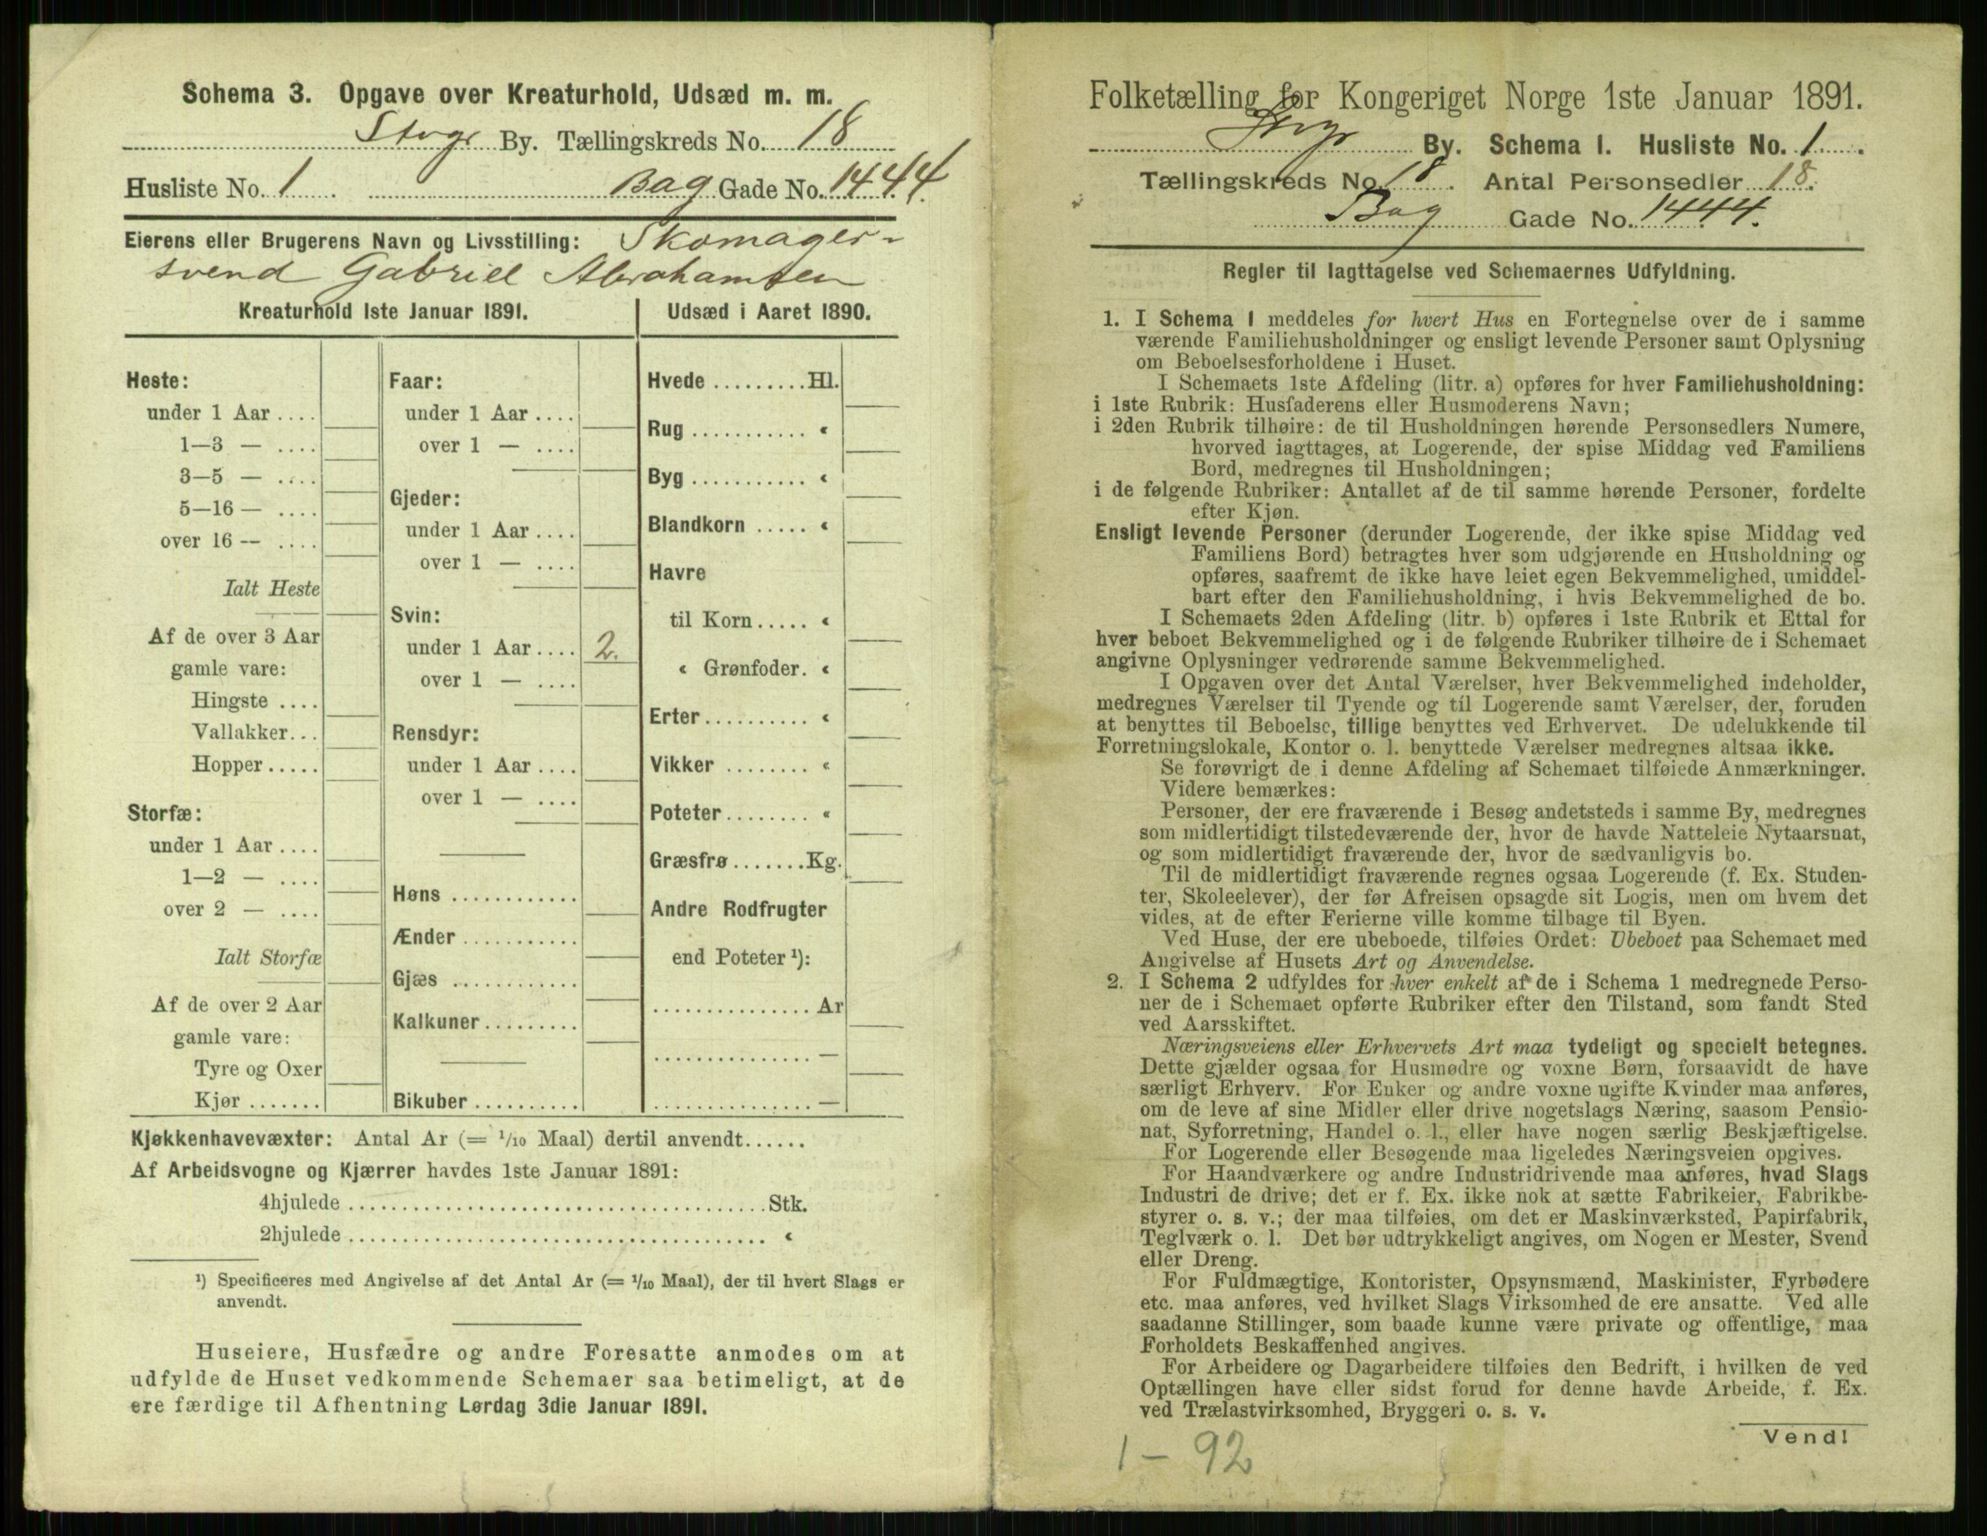 Schema 3. Opgave over Kreaturhold, Udsæd m. m.
Stvgr By. Tællingskreds No. 18
Husliste No. 1 Bag Gade No. 1444.
Eierens eller Brugerens Navn og Livsstilling: Skomager-
svend Gabriel Abrahamsen
Kreaturhold 1ste Januar 1891.
Heste:
under 1 Aar ....
1—3 — ....
3—5 — ....
5—16 — ....
over 16 — ....
Ialt Heste
Af de over 3 Aar
gamle vare:
Hingste ....
Vallakker...
Hopper.....
Storfæ:
under 1 Aar ....
1—2 — ....
over 2 — ....
Ialt Storfæ
Af de over 2 Aar
gamle vare:
Tyre og Oxer
Kjør .......
Faar:
under 1 Aar ....
over 1 — ....
Gjeder:
under 1 Aar ....
over 1 — ....
Svin:
under 1 Aar .... 2.
over 1 — ....
Rensdyr:
under 1 Aar ....
over 1 — ....
Høns ............
Ænder ...........
Gjæs ............
Kalkuner .........
Bikuber ..........
Udsæd i Aaret 1890.
Hvede .........Hl.
Rug ........... «
Byg ........... «
Blandkorn ..... «
Havre
til Korn ..... «
« Grønfoder. «
Erter .......... «
Vikker ........ «
Poteter ........ «
Græsfrø .......Kg.
Andre Rodfrugter
end Poteter ¹):
............... Ar
............... —
............... —
Kjøkkenhavevæxter: Antal Ar (= 1/10 Maal) dertil anvendt......
Af Arbeidsvogne og Kjærrer havdes 1ste Januar 1891:
4hjulede ......................................Stk.
2hjulede ...................................... «
¹) Specificeres med Angivelse af det Antal Ar (= 1/10 Maal), der til hvert Slags er
anvendt.
Huseiere, Husfædre og andre Foresatte anmodes om at
udfylde de Huset vedkommende Schemaer saa betimeligt, at de
ere færdige til Afhentning Lørdag 3die Januar 1891.
Folketælling for Kongeriget Norge 1ste Januar 1891.
Stvgr By. Schema I. Husliste No. 1.
Tællingskreds No. 18. Antal Personsedler 18.
Bag Gade No. 1444.
Regler til Iagttagelse ved Schemaernes Udfyldning.
1. I Schema I meddeles for hvert Hus en Fortegnelse over de i samme
værende Familiehusholdninger og ensligt levende Personer samt Oplysning
om Beboelsesforholdene i Huset.
I Schemaets 1ste Afdeling (litr. a) opføres for hver Familiehusholdning:
i 1ste Rubrik: Husfaderens eller Husmoderens Navn;
i 2den Rubrik tilhøire: de til Husholdningen hørende Personsedlers Numere,
hvorved iagttages, at Logerende, der spise Middag ved Familiens
Bord, medregnes til Husholdningen;
i de følgende Rubriker: Antallet af de til samme hørende Personer, fordelte
efter Kjøn.
Ensligt levende Personer (derunder Logerende, der ikke spise Middag ved
Familiens Bord) betragtes hver som udgjørende en Husholdning og
opføres, saafremt de ikke have leiet egen Bekvemmelighed, umiddel-
bart efter den Familiehusholdning, i hvis Bekvemmelighed de bo.
I Schemaets 2den Afdeling (litr. b) opføres i 1ste Rubrik et Ettal for
hver beboet Bekvemmelighed og i de følgende Rubriker tilhøire de i Schemaet
angivne Oplysninger vedrørende samme Bekvemmelighed.
I Opgaven over det Antal Værelser, hver Bekvemmelighed indeholder,
medregnes Værelser til Tyende og til Logerende samt Værelser, der, foruden
at benyttes til Beboelse, tillige benyttes ved Erhvervet. De udelukkende til
Forretningslokale, Kontor o. l. benyttede Værelser medregnes altsaa ikke.
Se forøvrigt de i denne Afdeling af Schemaet tilføiede Anmærkninger.
Videre bemærkes:
Personer, der ere fraværende i Besøg andetsteds i samme By, medregnes
som midlertidigt tilstedeværende der, hvor de havde Natteleie Nytaarsnat,
og som midlertidigt fraværende der, hvor de sædvanligvis bo.
Til de midlertidigt fraværende regnes ogsaa Logerende (f. Ex. Studen-
ter, Skoleelever), der før Afreisen opsagde sit Logis, men om hvem det
vides, at de efter Ferierne ville komme tilbage til Byen.
Ved Huse, der ere ubeboede, tilføies Ordet: Ubeboet paa Schemaet med
Angivelse af Husets Art og Anvendelse.
2. I Schema 2 udfyldes for hver enkelt af de i Schema 1 medregnede Perso-
ner de i Schemaet opførte Rubriker efter den Tilstand, som fandt Sted
ved Aarsskiftet.
Næringsveiens eller Erhvervets Art maa tydeligt og specielt betegnes.
Dette gjælder ogsaa for Husmødre og voxne Børn, forsaavidt de have
særligt Erhverv. For Enker og andre voxne ugifte Kvinder maa anføres,
om de leve af sine Midler eller drive nogetslags Næring, saasom Pensio-
nat, Syforretning, Handel o. l., eller have nogen særlig Beskjæftigelse.
For Logerende eller Besøgende maa ligeledes Næringsveien opgives.
For Haandværkere og andre Industridrivende maa anføres, hvad Slags
Industri de drive; det er f. Ex. ikke nok at sætte Fabrikeier, Fabrikbe-
styrer o. s. v.; der maa tilføies, om det er Maskinværksted, Papirfabrik,
Teglværk o. l. Det bør udtrykkeligt angives, om Nogen er Mester, Svend
eller Dreng.
For Fuldmægtige, Kontorister, Opsynsmænd, Maskinister, Fyrbødere
etc. maa anføres, ved hvilket Slags Virksomhed de ere ansatte. Ved alle
saadanne Stillinger, som baade kunne være private og offentlige, maa
Forholdets Beskaffenhed angives.
For Arbeidere og Dagarbeidere tilføies den Bedrift, i hvilken de ved
Optællingen have eller sidst forud for denne havde Arbeide, f. Ex.
ved Trælastvirksomhed, Bryggeri o. s. v.
Vend!
1 – 92